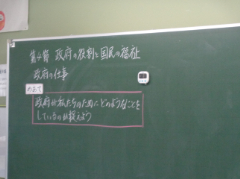 第4章 政府の役割と国民の福祉
政府の仕事
めあて
政府は私たちのためにどのようなことを
しているのか捉えよう